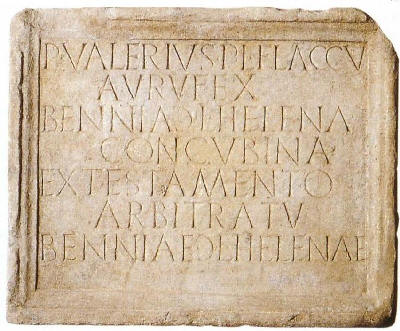 P·VALERIVS·P·L·FLACCV
AVRVFEX
BENNIA·Ɔ·L·HELENA
CONCVBINA
EX TESTAMENTO
ARBITRATV
BENNIAE·Ɔ·L·HELENAE